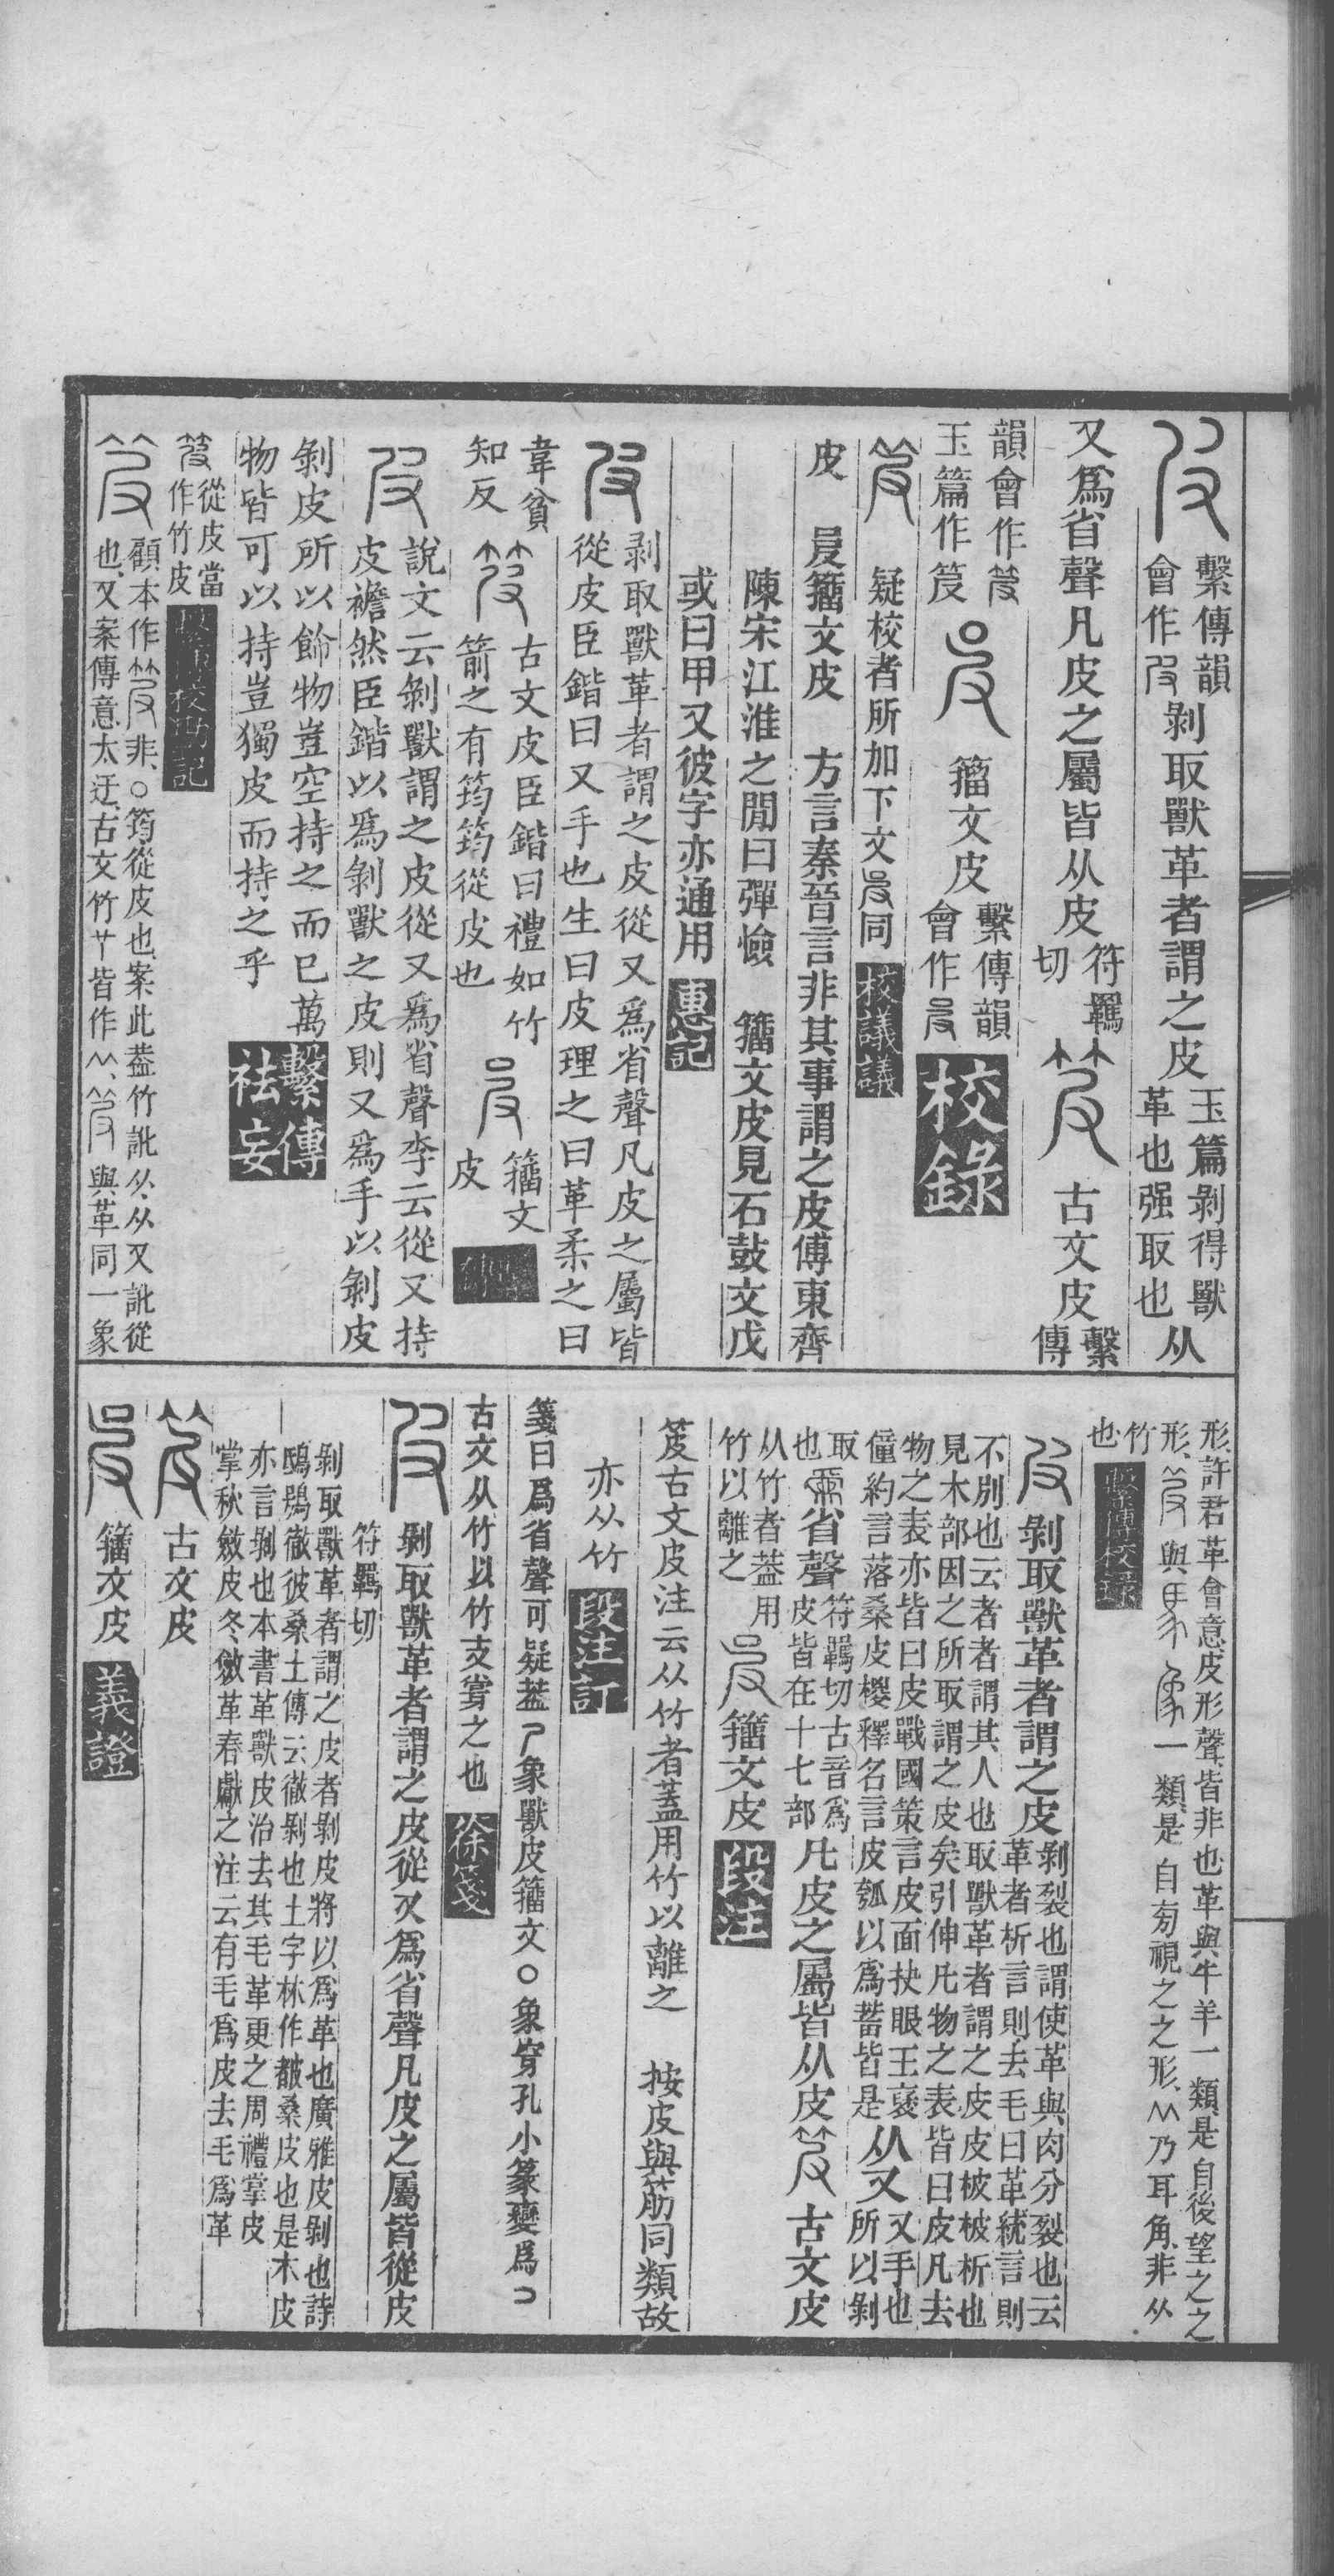 繫傳韻
會作
剝取獸革者謂之皮
玉篇剝得獸
革也强取也
从
又爲省聲凡皮之屬皆从皮
符羈
切
古文皮
繫
傳
韻會作笈
玉篇作笈
籒文皮
繫傳韻
會作
校錄
疑校者所加下文同
校議議
皮
籒文皮
方言秦晉言非其事謂之皮傅東齊
陳宋江淮之閒曰彈憸
籒文皮見石鼓文戊
或曰甲又彼字亦通用
惠記
剝取獸革者謂之皮從又爲省聲凡皮之屬皆
從皮臣鍇曰又手也生曰皮理之曰革柔之曰
韋貧
知反
古文皮臣鍇曰禮如竹
箭之有筠筠從皮也
籒文
皮
說文云剝獸謂之皮從又爲省聲李云從又持
皮襜然臣鍇以爲剝獸之皮則又爲手以剝皮
剝皮所以飾物豈空持之而已萬
物皆可以持豈獨皮而持之乎
繫傳
祛妄
從皮當
作竹皮
校勘記
顧本作非○筠從皮也案此葢竹訛从从又訛從
也又案傳意太迂古文竹艸皆作與革同一象
形許君革會意皮形聲皆非也革與牛羊一類是自後望之之
形與一類是自菊視之之形乃耳角非从
竹
也
繫傳校錄
剝取獸革者謂之皮
剝裂也謂使革與肉分裂也云
革者析言則去毛曰革統言則
不別也云者者謂其人也取獸革者謂之皮皮柀柀析也
見木部因之所取謂之皮矣引伸凡物之表皆曰皮凡去
物之表亦皆曰皮戰國策言皮面抉眼王襃
僮約言落桑皮椶釋名言皮瓠以爲蓄皆是
从又
又手也
所以剝
取
也
省聲
符羈切古音爲
皮皆在十七部
凡皮之屬皆从皮
古文皮
从竹者葢用
竹以離之
籒文皮
段注
笈古文皮注云从竹者蓋用竹以離之
按皮與筋同類故
亦从竹
段注訂
箋曰爲省聲可疑葢象獸皮籒文○象穿孔小篆變爲
古文从竹以竹支㝊之也
徐箋
剝取獸革者謂之皮從又爲省聲凡皮之屬皆從皮
符羈切
剝取獸革者謂之皮者剝皮將以爲革也廣雅皮剝也詩
鴟鴞徹彼桑土傳云徹剝也土字林作𣪠桑皮也是木皮
亦言剝也本書革獸皮治去其毛革更之周禮掌皮
掌秋斂皮冬斂革春獻之注云有毛爲皮去毛爲革
古文皮
籒文皮
義證